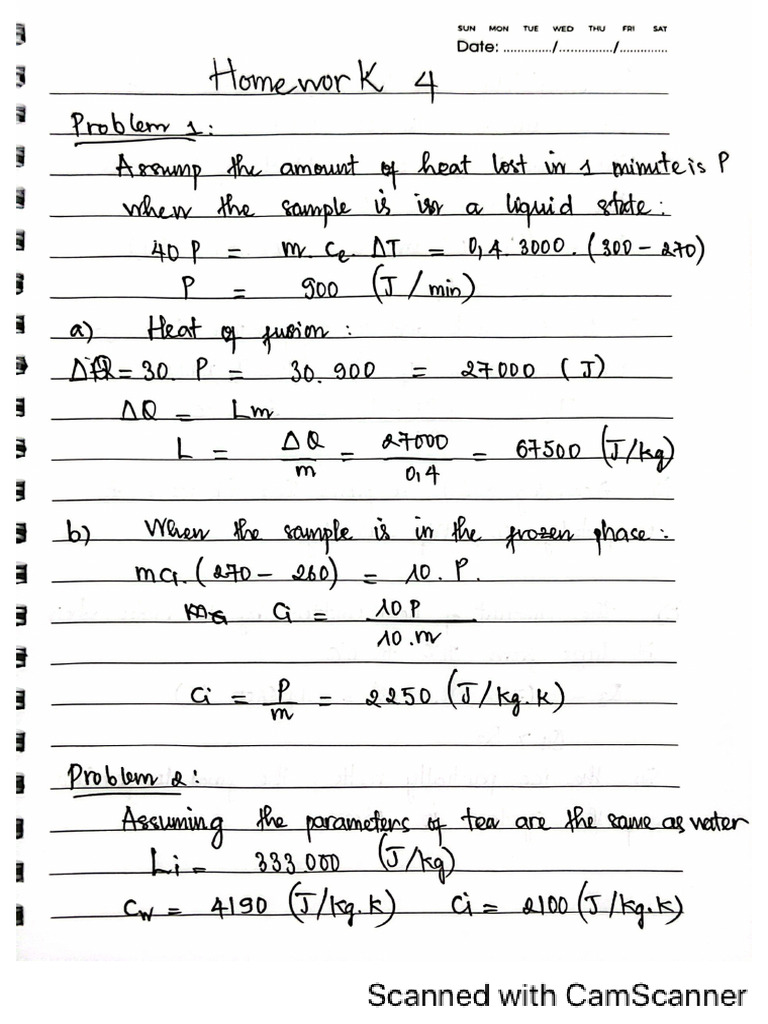 SUN MON TUE WED THU FRI SAT
Date: ............./............../.............
Homework 4
Problem 1:
Assump the amount of heat lost in 1 minute is P
when the sample is in a liquid state:
40 P = m. Ce. ΔT = 0,4. 3000. (300 - 270)
P = 900 (J/min)
a) Heat of fusion:
ΔQ = 30. P = 30. 900 = 27000 (J)
ΔQ = Lm
L = ΔQ/m = 27000/0,4 = 67500 (J/kg)
b) When the sample is in the frozen phase:
mci. (270 - 260) = 10. P.
Ci = 10P/10.m
Ci = P/m = 2250 (J/kg.K)
Problem 2:
Assuming the parameters of tea are the same as water
Li = 333 000 (J/kg)
Cw = 4190 (J/kg.K) Ci = 2100 (J/kg.K)
Scanned with CamScanner